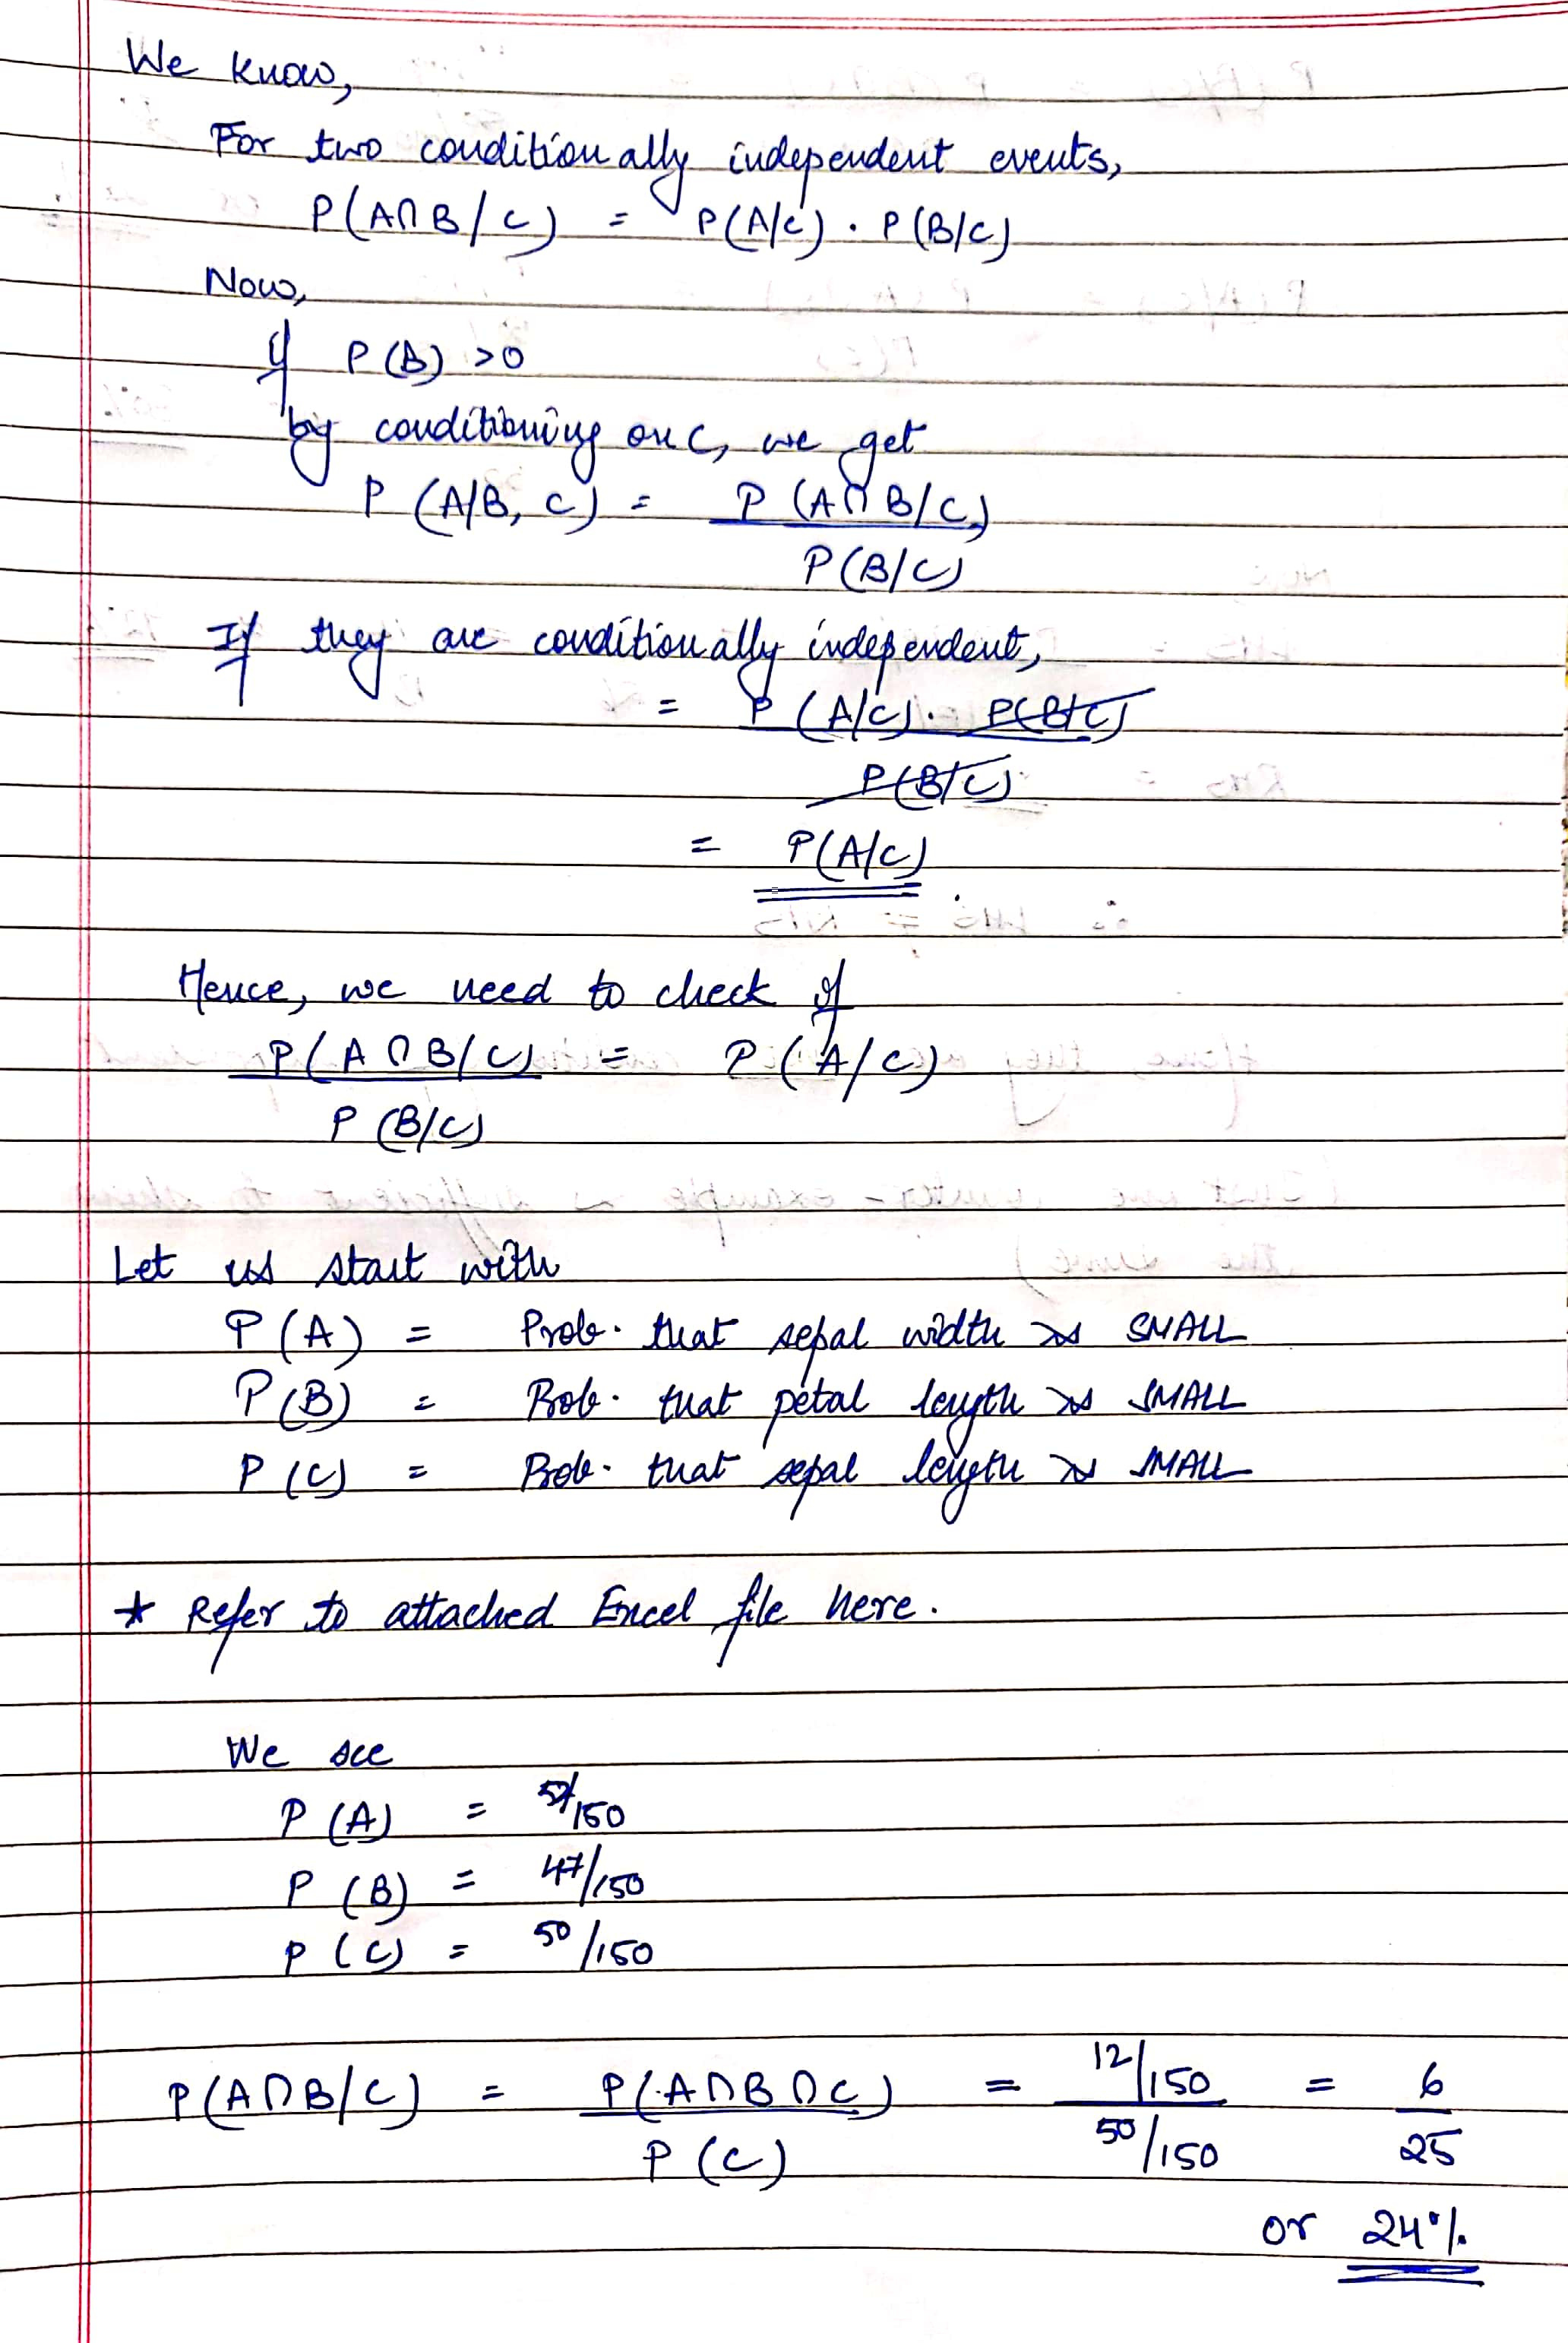 We know,
For two conditionally independent events,
P(A∩B/C) = P(A/C) . P(B/C)
Now,
If P(B) >0
by conditioning on C, we get
P(A/B, C) = P(A∩B/C)
P(B/C)
If they are conditionally independent,
= P(A/C) . P(B/C)
P(B/C)
= P(A/C) .
Hence, we need to check if
P(A∩B/C) = P(A/C)
P(B/C)
Let us start with
P(A) = Prob. that sepal width is SMALL
P(B) = Prob. that petal length is SMALL
P(C) = Prob. that sepal length is SMALL
* Refer to attached Excel file here.
We see
P(A) = 57/150
P(B) = 47/150
P(C) = 50/150
P(A∩B/C) = P(A∩B∩C) = 12/150 = 6
P(C) 50/150 25
or 24%